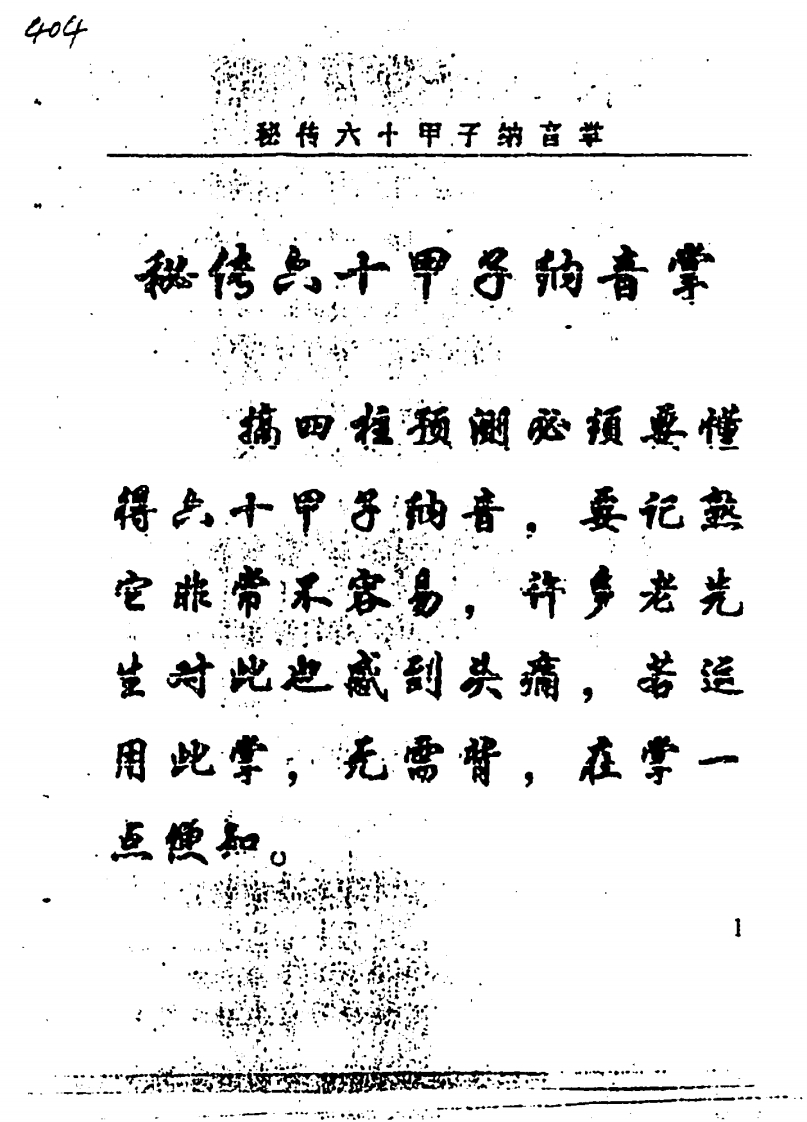 404
秘传六十甲子纳音掌
秘传六十甲子纳音掌
搞四柱预测必须要懂
得六十甲子纳音，要记熟
它非常不容易，许多老先
生对此也感到头痛，若运
用此掌，无需背，在掌一
点便知。
1